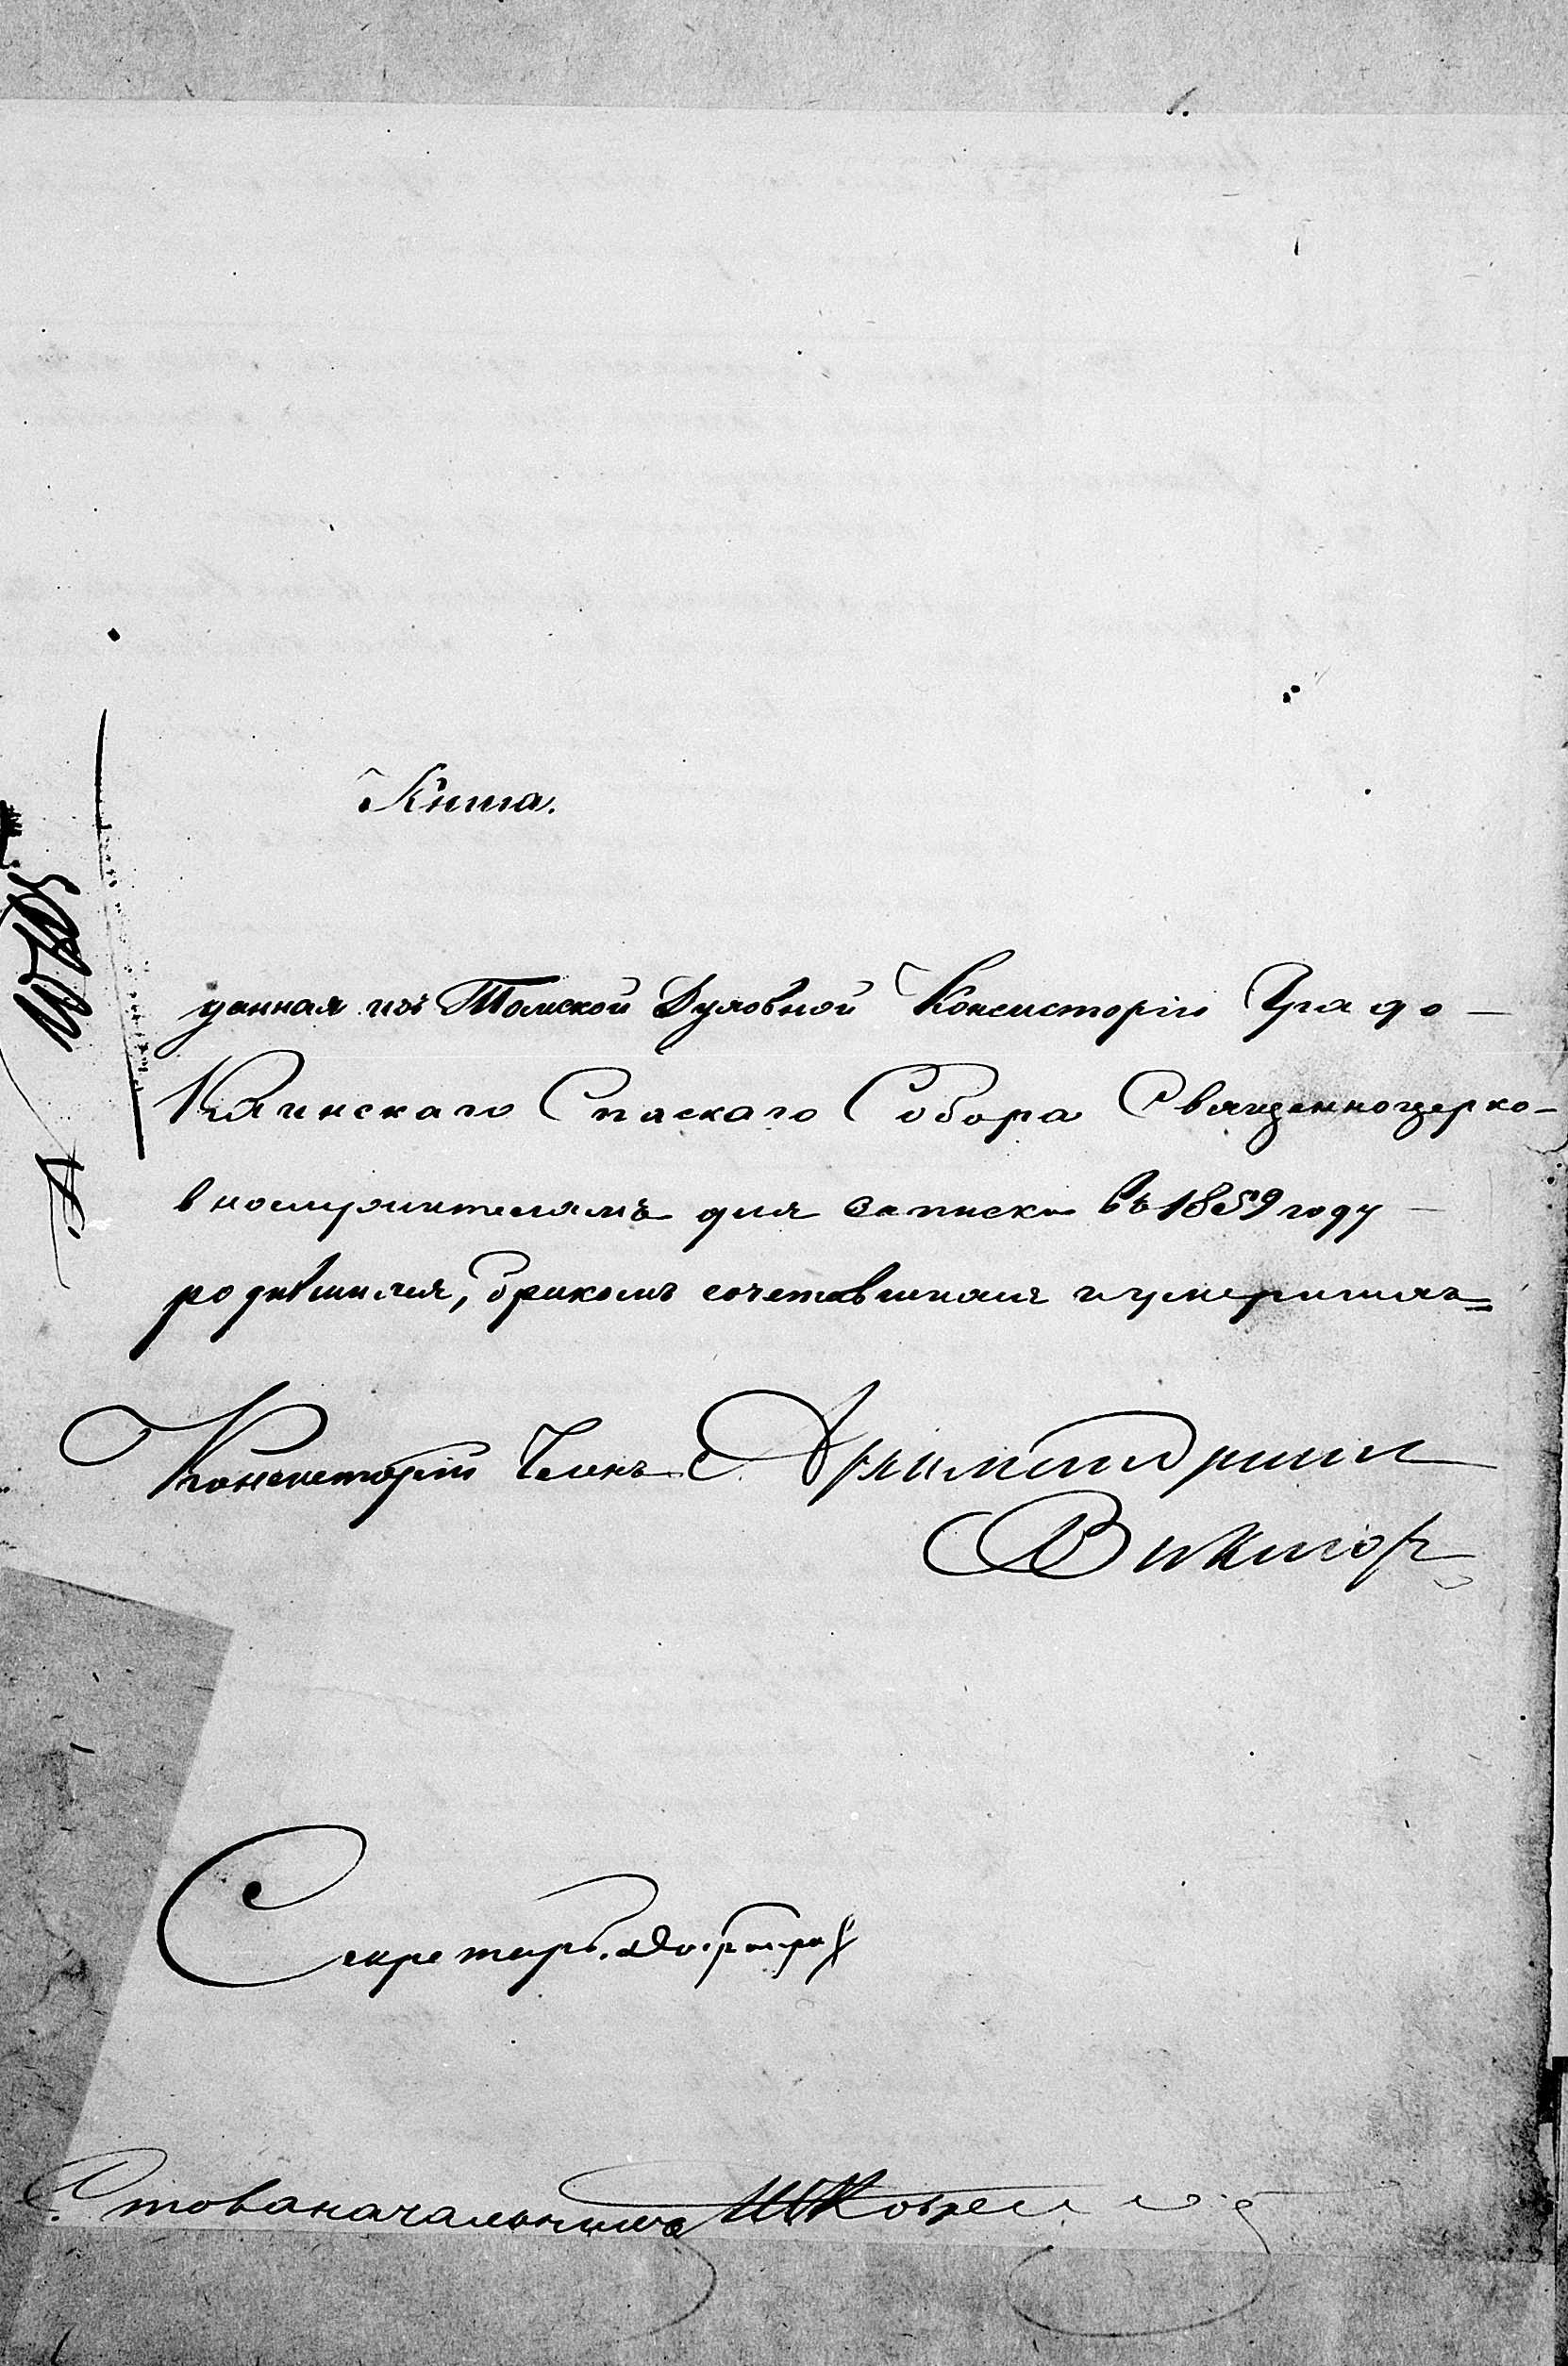 1.
Книга.
данная изъ Томской Духовной Консисторіи Градо-
Каинскаго Спаскаго Собора Священноцерко-
внослужителямъ для записки въ 1859 году
родившихся, бракомъ сочетавшихся и умершихъ=
Консисторіи Членъ Архимандритъ
Викторъ
Секретарь
Столоначальникъ